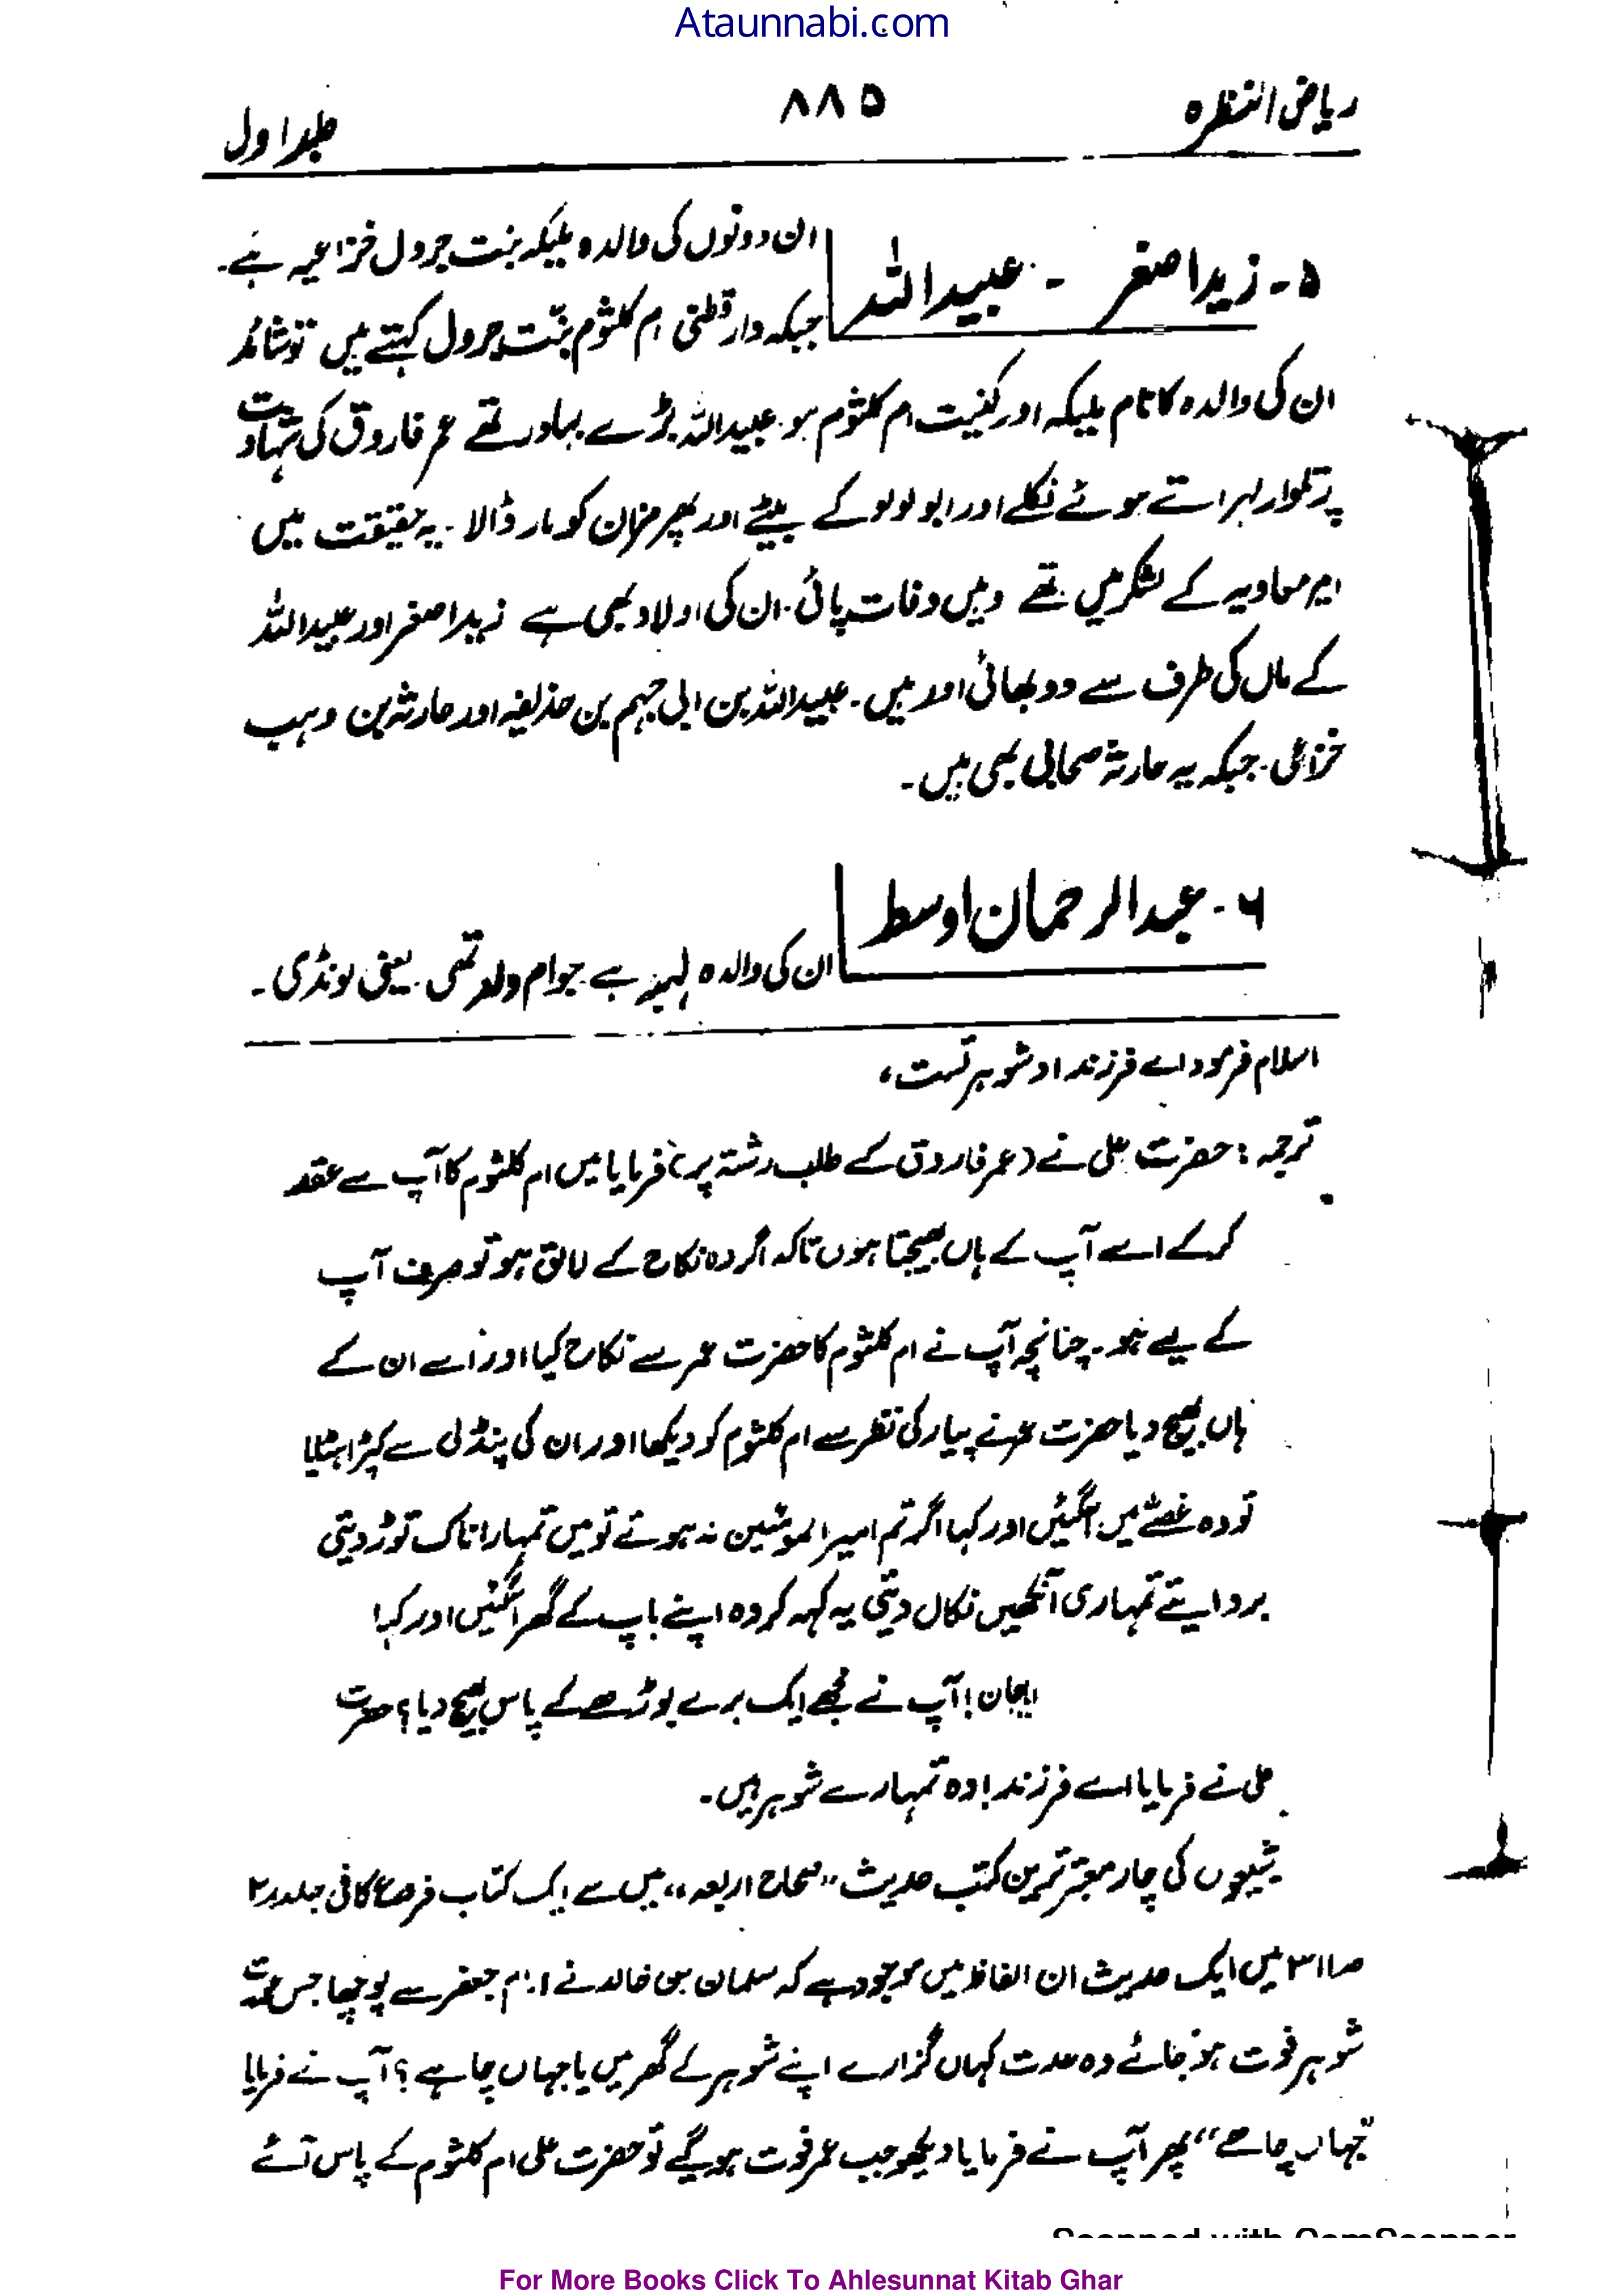 Ataunnabi.com
ریاض النضرہ
۸۸۵
جلد اول
۵۔ زید اصغر ۔ عبیداللہ
ان دونوں کی والدہ ملیکہ بنت جرول خزاعیہ ہے۔
جبکہ دار قطنی ام کلثوم بنت جرول کہتے ہیں تو شائد
ان کی والدہ کا نام ملیکہ اور کنیت ام کلثوم ہو۔ عبیداللہ بڑے بہادر تھے عمر فاروق کی شہادت
پر تلوار لہراتے ہوئے نکلے اور ابو لولو کے بیٹے اور پھر ہرمزان کو مار ڈالا۔ یہ حقیقت میں
امیر معاویہ کے لشکر میں تھے وہیں وفات پائی۔ ان کی اولاد بھی ہے زید اصغر اور عبیداللہ
کے ماں کی طرف سے دو بھائی اور ہیں۔ عبیداللہ بن ابی جہم بن حذیفہ اور حارثہ بن وہب
خزاعی۔ جبکہ یہ حارثہ صحابی بھی ہیں۔
۶۔ عبدالرحمان اوسط
ان کی والدہ لہیہ ہے جو ام ولد تھی۔ یعنی لونڈی۔
اسلام فرمود اے فرزند او شوہر تست،
ترجمہ: حضرت علی نے (عمر فاروق کے طلب رشتہ پر) فرمایا میں ام کلثوم کا آپ سے عقد
کرکے اسے آپ کے ہاں بھیجتا ہوں تاکہ اگر وہ نکاح کے لائق ہو تو صرف آپ
کے لیے ہو۔ چنانچہ آپ نے ام کلثوم کا حضرت عمر سے نکاح کیا اور اسے ان کے
ہاں بھیج دیا حضرت عمر نے پیار کی نظر سے ام کلثوم کو دیکھا اور ان کی پنڈلی سے کپڑا ہٹایا
تو وہ غصے میں آگئیں اور کہا اگر تم امیرالمومنین نہ ہوتے تو میں تمہارا ناک توڑ دیتی
بروایتے تمہاری آنکھیں نکال دیتی یہ کہہ کر وہ اپنے باپ کے گھر آگئیں اور کہا
اباجان! آپ نے مجھے ایک برے بوڑھے کے پاس بھیج دیا؟ حضرت
علی نے فرمایا اے فرزند! وہ تمہارے شوہر ہیں۔
شیعوں کی چار معتبر ترین کتب حدیث "صحاح اربعہ" میں سے ایک کتاب فروع کافی جلد ۲
صـ۳۱۱ میں ایک حدیث ان الفاظ میں موجود ہے کہ سلمان بن خالد نے امام جعفر سے پوچھا جس عورت
شوہر فوت ہو جائے وہ عدت کہاں گزارے اپنے شوہر کے گھر میں یا جہاں چاہے؟ آپ نے فرمایا
"جہاں چاہے" پھر آپ نے فرمایا دیکھو جب عمر فوت ہوگئے تو حضرت علی ام کلثوم کے پاس آئے
Scanned with CamScanner
For More Books Click To Ahlesunnat Kitab Ghar